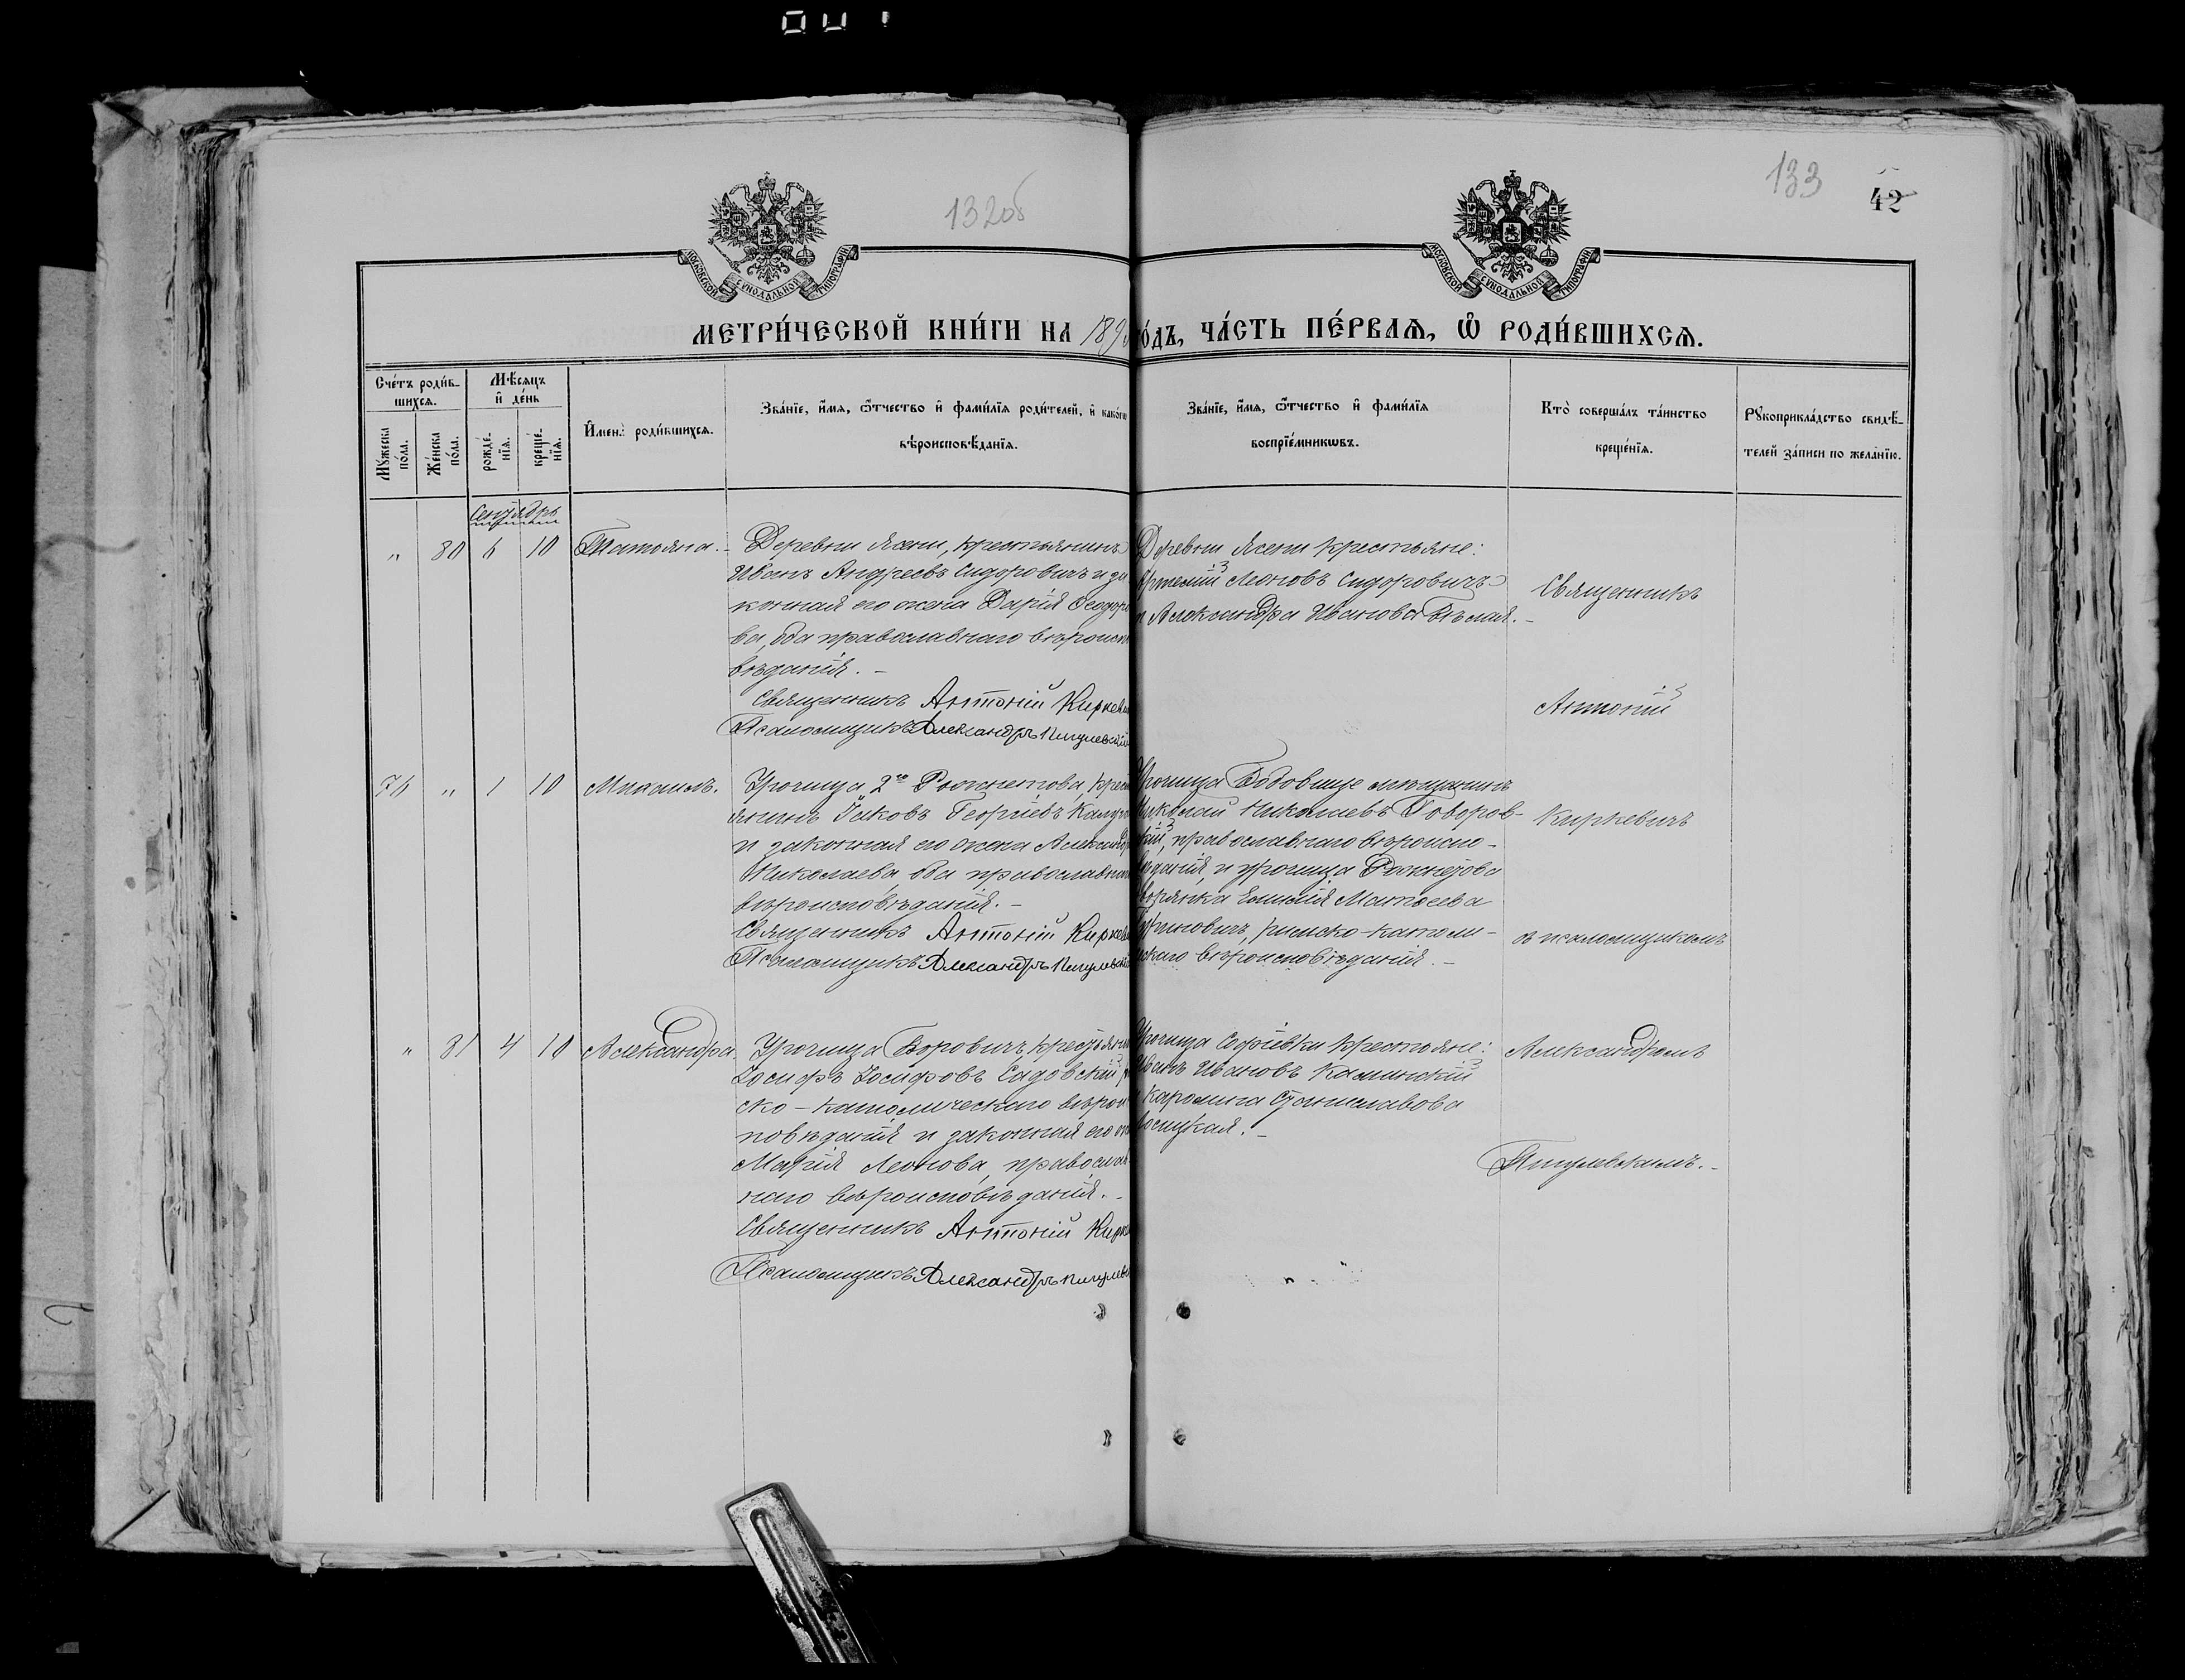 132об
133
42
МОСКОВСКОЙ СѴНОДАЛЬНОЙ ТИПОГРАФІИ
МОСКОВСКОЙ СѴНОДАЛЬНОЙ ТИПОГРАФІИ
МЕТРИ́ЧЕСКОЙ КНИ́ГИ НА 189
го́дъ, ЧА́СТЬ ПЕ́РВАѦ, Ѿ РОДИ́ВШИХСѦ.
Сче́тъ роди́в-
шихсѧ.
Мꙋ́жеска по́ла.
Же́нска по́ла.
Мѣ́сѧцъ
и҆ де́нь
рожде́-
нїѧ.
креще́-
нїѧ.
И҆мена̀ роди́вшихсѧ.
Зва́нїе, и҆́мѧ, ѻ҆́тчество и҆ фами́лїѧ роди́телей, и҆ како́гѡ
вѣроисповѣ́данїѧ.
Зва́нїе, и҆́мѧ, ѻ҆́тчество и҆ фами́лїѧ
воспрїе́мникѡвъ.
Кто̀ соверша́лъ та́инство
креще́нїѧ.
Рꙋкоприкла́дство свидѣ́-
телей за́писи по жела́нїю.
Сентябрь
" 80 6 10 Татьяна.
Деревни Ясени, крестьянинъ
Иванъ Андреевъ Сидоровичъ и за
конная его жена Дарія Ѳеодоро
ва, оба православнаго вѣроиспо
вѣданія.
Священникъ Антоній Киркев
Псаломщикъ Александръ Пигулевскій
Деревни Ясени крестьяне:
Леоновъ Сидоровичъ
и Александра Иванова
Священникъ
Антоній
Киркевичъ
съ псаломщикомъ
Александромъ
Пигулевскимъ.
76 " 1 10 Михаилъ.
Урочища 2го Рожнетова, крест
янинъ Іаковъ Георгіевъ
и законная его жена Александра
Николаева, оба православнаго
вѣроисповѣданія.
Священникъ Антоній Киркев
Псаломщикъ Александръ Пигулевскій
Урочища мѣщанинъ
Николай Николаевъ Говоров-
скій, православнаго вѣроиспо-
вѣданія, и урочища Рожнетова
дворянка Емилія Матѳеева
римско-католи-
ческаго вѣроисповѣданія.
" 81 4 10 Александра.
Урочища Боровичъ, крестьянинъ
Іосифъ Іосифовъ Садовскій, рим
ско-католическаго вѣроис
повѣданія и законная его жена
Марія Леонова, православ
наго вѣроисповѣданія.
Священникъ Антоній Кирке
Псаломщикъ Александръ Пигулевс
Урочища Софіевки крестьяне:
Иванъ Ивановъ Калинскій
и Каролина Станиславова